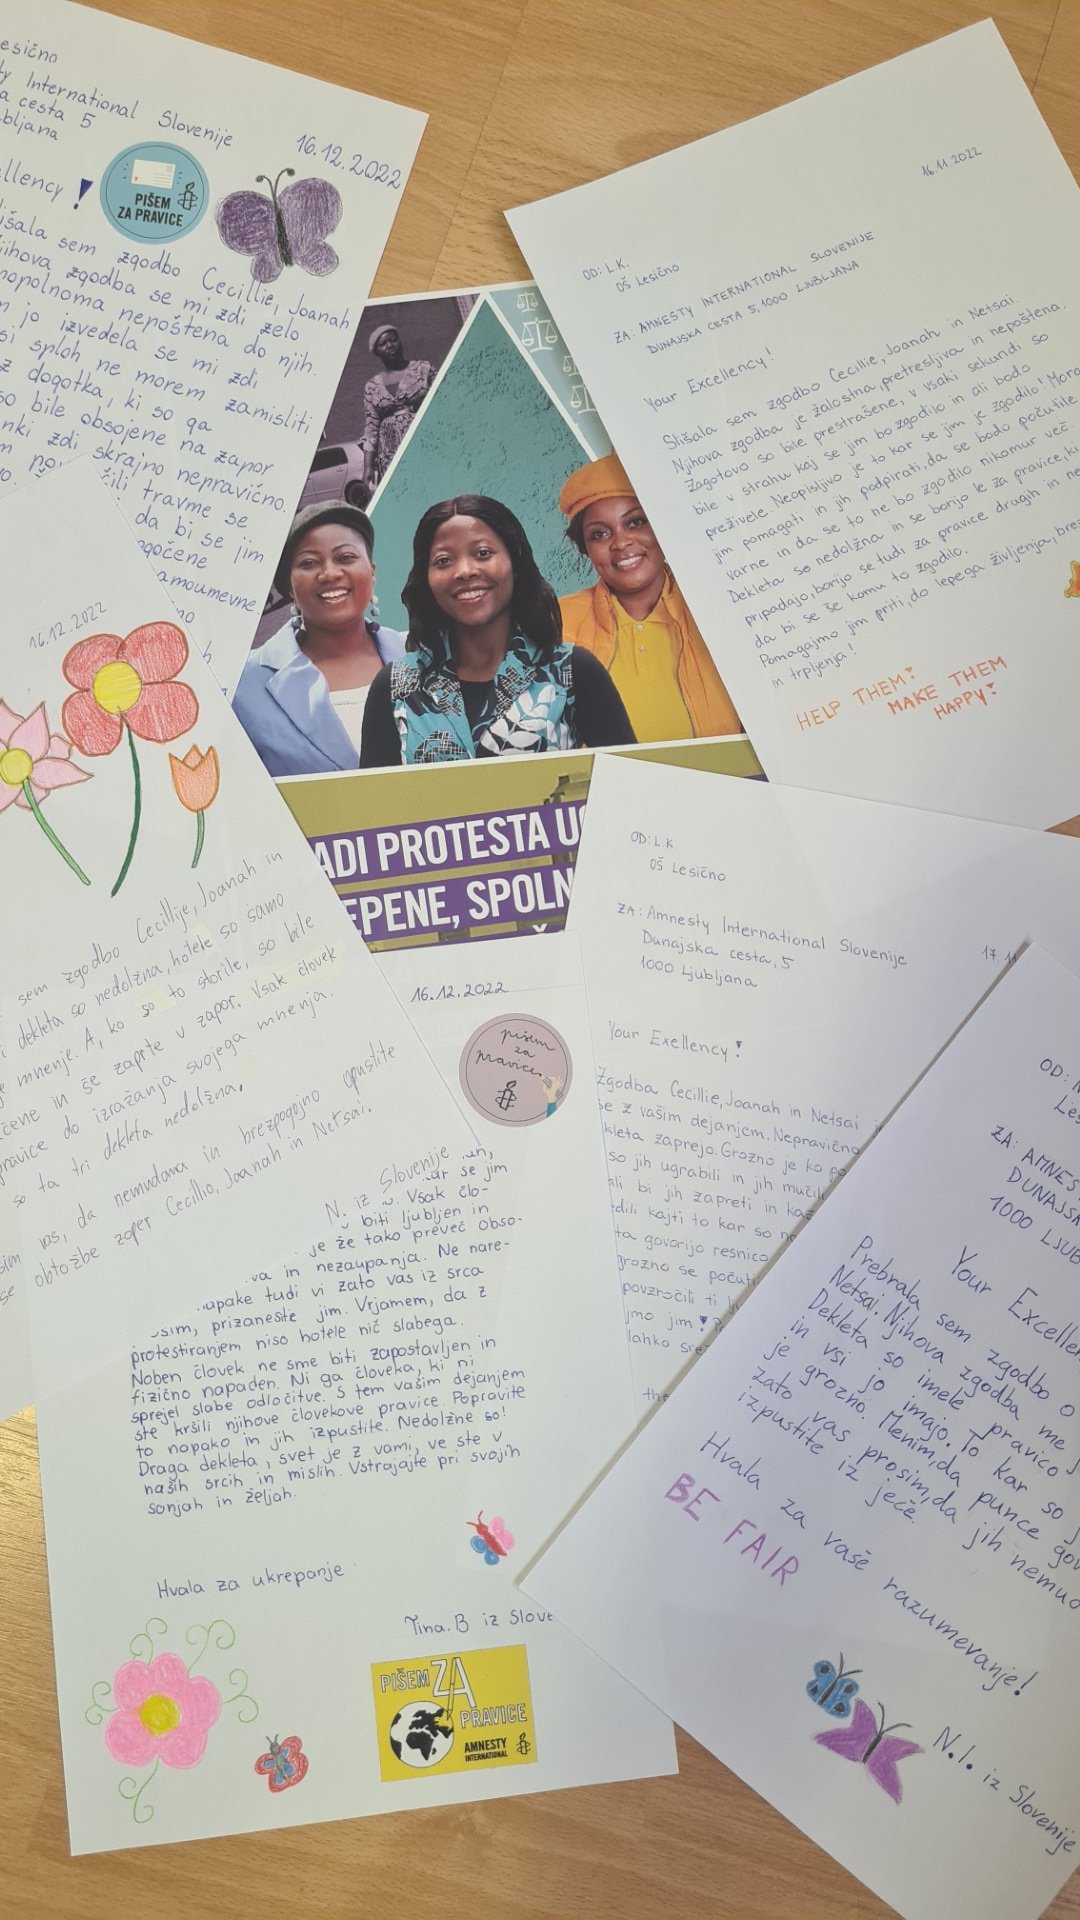 esično
ty International Slovenije
a cesta 5
bljana
16.12.2022
ellency!
PIŠEM
ZA PRAVICE
išala sem zgodbo Cecillie, Joanah
jihova zgodba se mi zdi zelo
nopolnoma nepoštena do njih.
m jo izvedela se mi zdi
si sploh ne morem zamisliti
z dogotka, ki so ga
so bile obsojene na zapor
nki zdi skrajno nepravično.
žili travme se
da bi se jim
gočene
amoumevne
16.11.2022
OD: L.K.
OŠ Lesično
ZA: AMNESTY INTERNATIONAL SLOVENIJE
DUNAJSKA CESTA 5, 1000 LJUBLJANA
Your Excellency!
Slišala sem zgodbo Cecillie, Joanah in Netsai.
Njihova zgodba je žalostna, pretresljiva in nepoštena.
Zagotovo so bile prestrašene, v vsaki sekundi so
bile v strahu kaj se jim bo zgodilo in ali bodo
preživele. Neopisljivo je to kar se jim je zgodilo! Mora
jim pomagati in jih podpirati, da se bodo počutile
varne in da se to ne bo zgodilo nikomur več.
Dekleta so nedolžna in se borijo le za pravice, ki
pripadajo, borijo se tudi za pravice drugih in ne
da bi se še komu to zgodilo.
Pomagajmo jim priti, do lepega življenja, brez
in trpljenja!
HELP THEM!
MAKE THEM
HAPPY!
ADI PROTESTA U
EPENE, SPOLN
16.12.2022
sem zgodbo Cecillije, Joanah in
i dekleta so nedolžna, hotele so samo
je mnenje. A, ko so to storile, so bile
čene in še zaprte v zapor. Vsak človek
pravice do izražanja svojega mnenja.
so ta tri dekleta nedolžna.
sim vas, da nemudoma in brezpogojno opustite
obtožbe zoper Cecillio, Joanah in Netsai.
16.12.2022
pišem
za
pravice
N. iz Slovenije
ar se jim
Vsak člo-
biti ljubljen in
je že tako preveč obso-
va in nezaupanja. Ne nare-
napake tudi vi zato vas iz srca
osim, prizanesite jim. Vrjamem, da z
protestiranjem niso hotele nič slabega.
Noben človek ne sme biti zapostavljen in
fizično napaden. Ni ga človeka, ki ni
sprejel slabe odločitve. S tem vašim dejanjem
ste kršili njihove človekove pravice. Popravite
to napako in jih izpustite. Nedolžne so!
Draga dekleta, svet je z vami, ve ste v
naših srcih in mislih. Vstrajajte pri svojih
sanjah in željah.
Hvala za ukrepanje
Tina.B iz Slove
PIŠEM ZA
PRAVICE
AMNESTY
INTERNATIONAL
OD: L.K.
OŠ Lesično
ZA: Amnesty International Slovenije
Dunajska cesta, 5
1000 Ljubljana
17.1
Your Exellency!
Zgodba Cecillie, Joanah in Netsai
se z vašim dejanjem. Nepravično
kleta zaprejo. Grozno je ko po
so jih ugrabili in jih mučili
ali bi jih zapreti in kaz
edili kajti to kar so na
ta govorijo resnico
grozno se počuti
povzročili ti l
jmo jim!
lahko sre
the
OD:
Les
ZA: AMNES
DUNAJSK
1000 LJUB
Your Excellen
Prebrala sem zgodbo o
Netsai. Njihova zgodba me
Dekleta so imele pravico
in vsi jo imajo. To kar so j
je grozno. Menim, da punce gov
zato vas prosim, da jih nemudo
izpustite iz ječe.
Hvala za vaše razumevanje!
BE FAIR
N.I. iz Slovenije